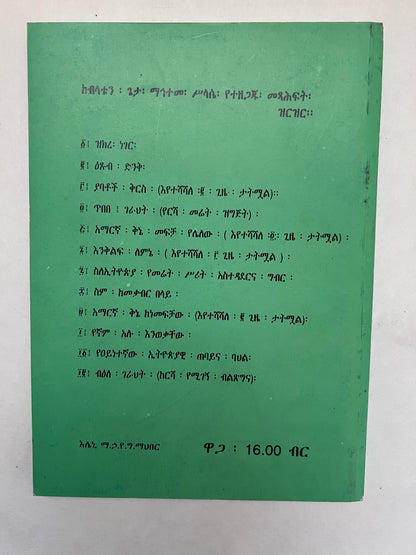 ከብላቴን ፡ ጌታ፡ ማኅተመ፡ ሥላሴ፡ የተዘጋጁ፡ መጻሕፍት፡
ዝርዝር።
፩፤ ዝክረ፡ ነገር፡
፪፤ ዕጹብ ፡ ድንቅ፡
፫፤ ያባቶች ፡ ቅርስ ፡ (እየተሻሻለ ፡፪ ፡ ጊዜ ፡ ታትሟል)።
፬፤ ጥበበ ፡ ገራህት ፡ (የርሻ ፡ መሬት ፡ ዝግጅት) ፡
፭፤ አማርኛ ፡ ቅኔ ፡ መፍቻ ፡ የሌለው ፡ ( እየተሻሻለ ፡፬፡ ጊዜ ፡ ታትሟል) ፡
፮፤ እንቅልፍ ፡ ለምኔ ፡ ( እየተሻሻለ ፡ ፫ ጊዜ ፡ ታትሟል ) ፡
፯፤ ስለኢትዮጵያ ፡ የመሬት ፡ ሥሪት ፡ አስተዳደርና ፡ ግብር ፡
፰፤ ስም ፡ ከመቃብር በላይ ፡
፱፤ አማርኛ ፡ ቅኔ ከነመፍቻው ፡ (እየተሻሻለ ፡ ፪ ጊዜ ፡ ታትሟል)፡
፲፤ የኛም ፡ አሉ ፡ እንወቃቸው ፡
፲፩፤ የዐይነተኛው ፡ ኢትዮጵያዊ ፡ ጠባይና ፡ ባህል፡
፲፪፤ ብዕለ ፡ ገራህት ፡ (ከርሻ ፡ የሚገኝ ፡ ብልጽግና)፡
እሌኒ ማ.ኃ.የ.ግ.ማህበር
ዋጋ ፡ 16.00 ብር